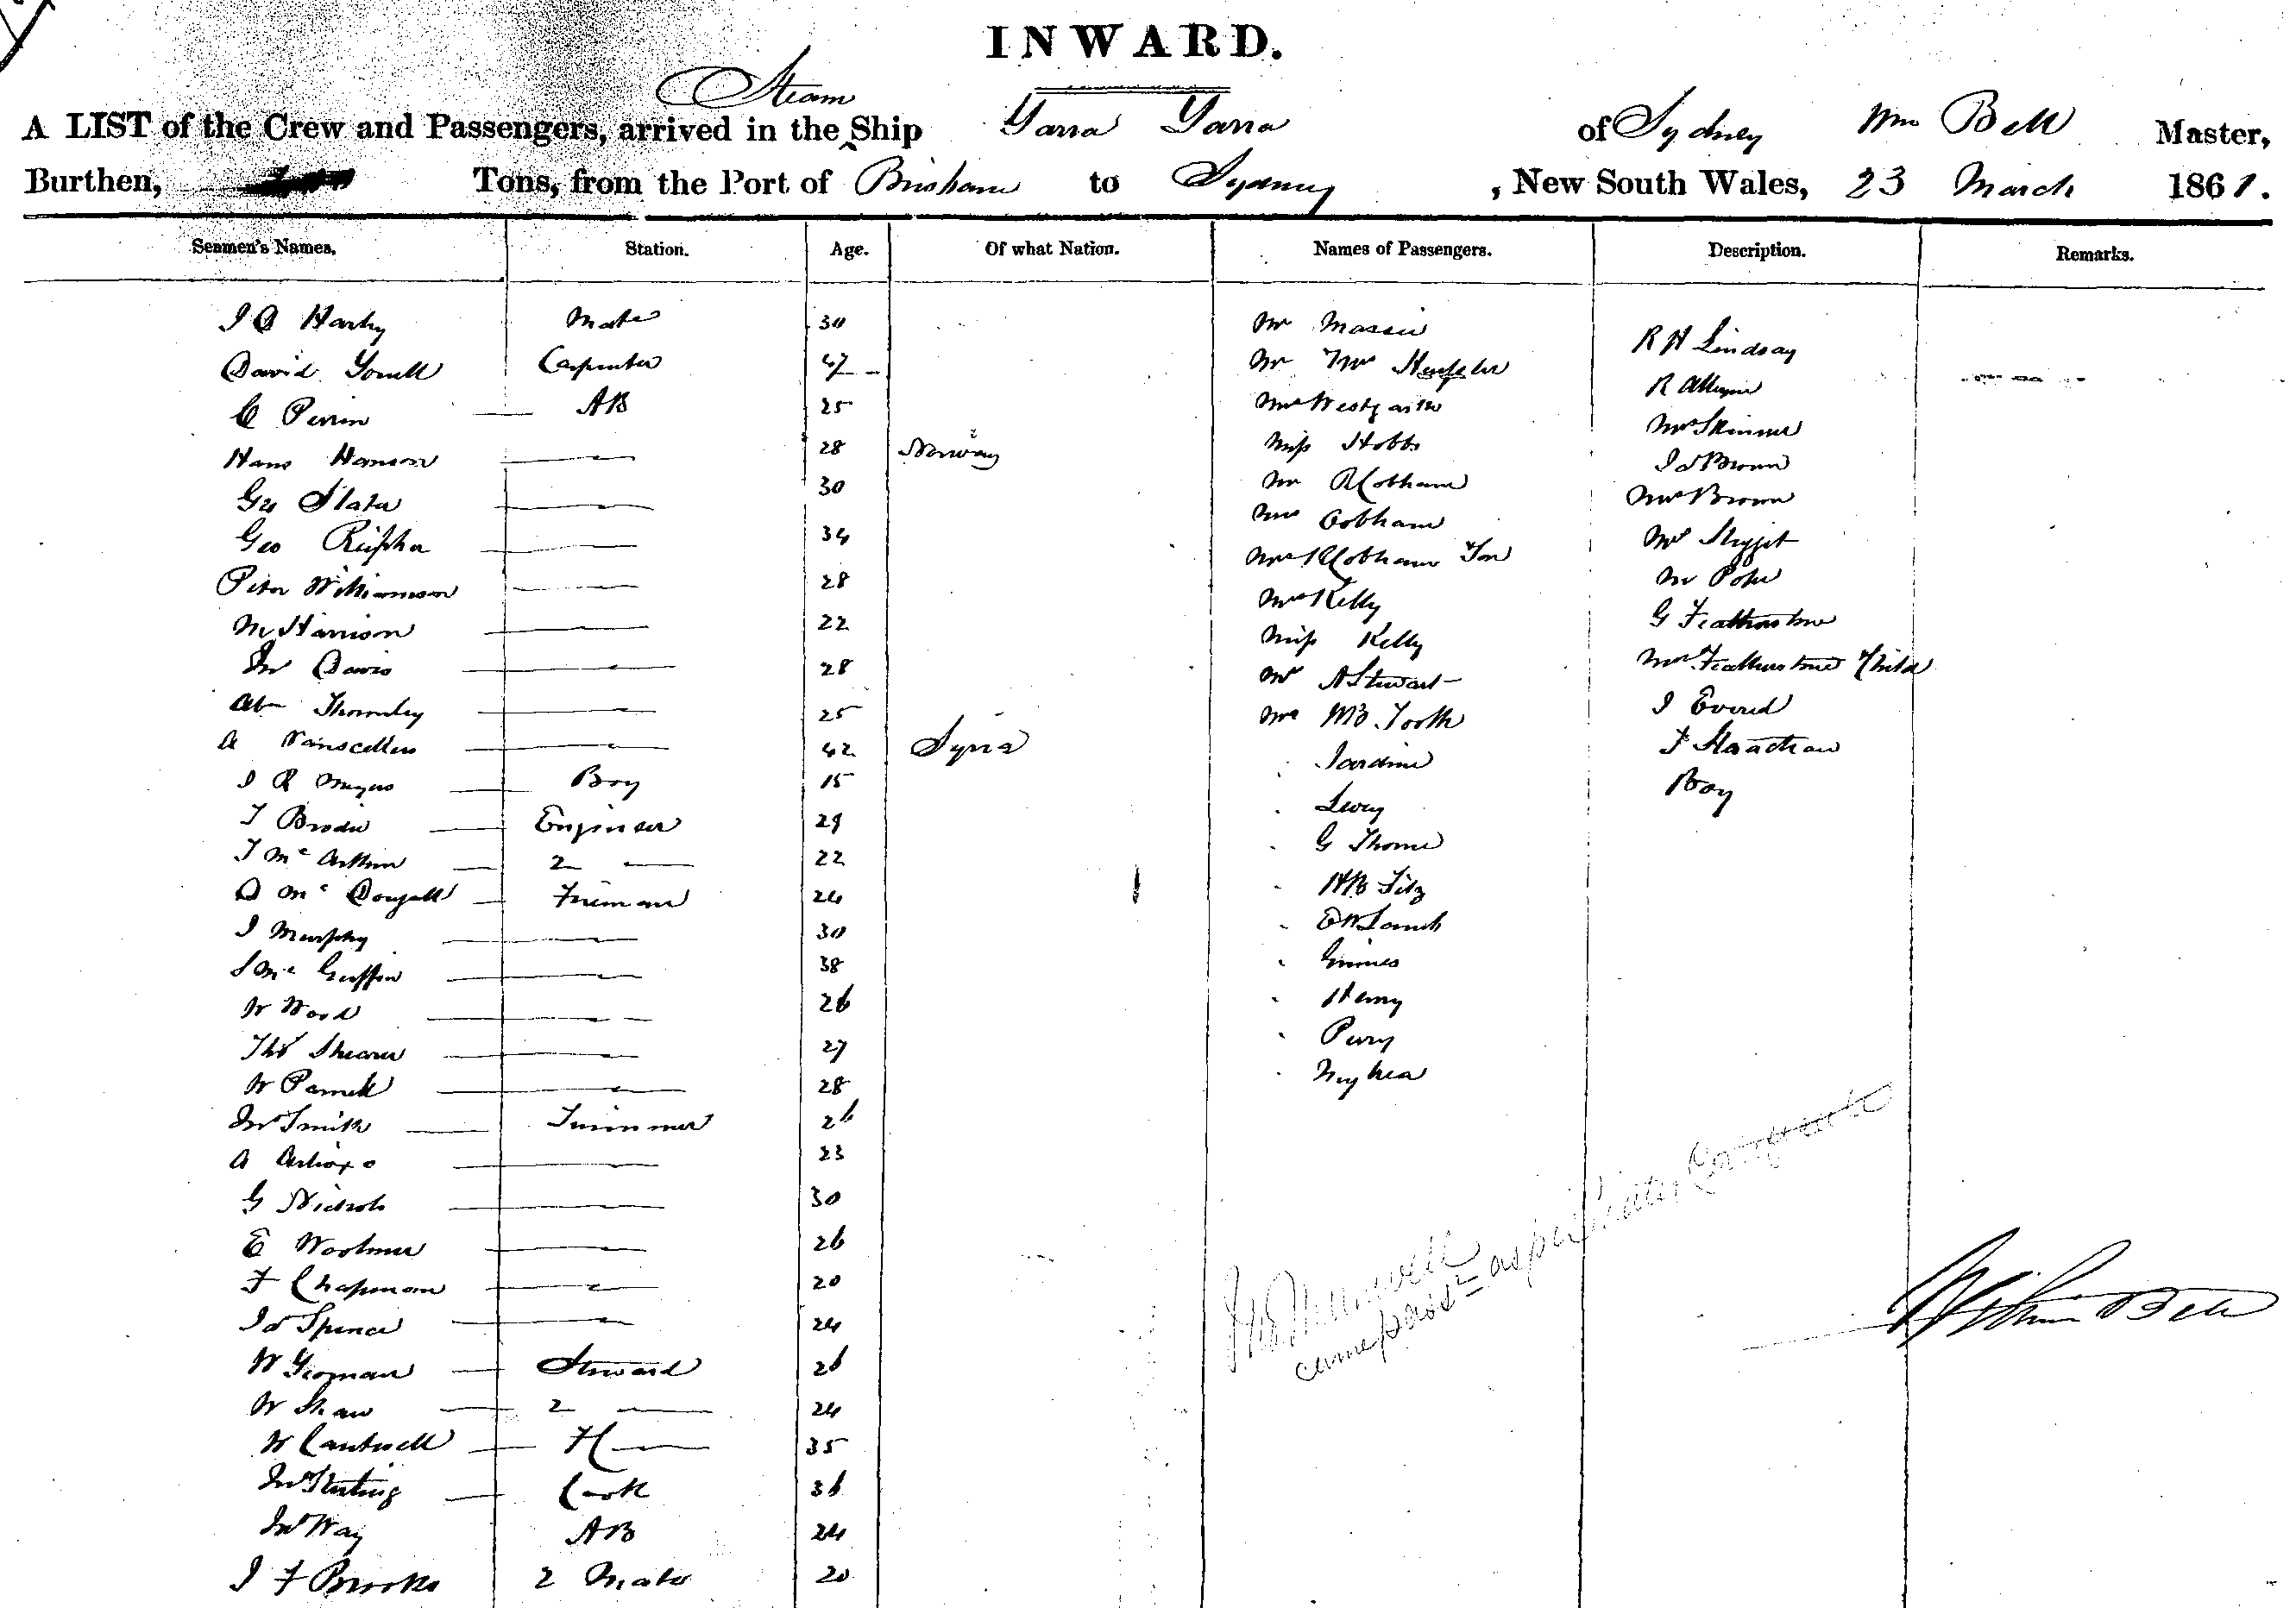 INWARD.
A LIST of the Crew and Passengers, arrived in the Steam Ship Yarra Yarra of Sydney Wm Bell Master,
Burthen, Tons, from the Port of Brisbane to Sydney, New South Wales, 23 March 1861.
Seamen's Names. Station. Age. Of what Nation. Names of Passengers. Description. Remarks.
Mate 30
David Carpenter 47
C Perrin AB 25
Hans Hanson 28 Norway
Geo Slater 30
Geo 34
Peter Williamson 28
M Harrison 22
Jno Davis 28
Thornley 25
A 42 Syria
J R Myers Boy 15
T Brodie Engineer 29
T McArthur 2 22
D McDougall Fireman 24
J Murphy 30
S McGuffin 38
W Wood 26
Thos Shearer 27
W Parnell 28
Jno Smith Trimmer 26
A 23
G Nichols 30
E Woolmer 26
F Chapman 20
Jas Spence 24
W Yeoman Steward 26
W Shaw 2 24
W Cantwell 35
Jno Cook 36
Jno Way AB 24
J F Brooks 2 Mate 20
Mr Massie
Mr Mrs
Mrs Westgarth
Miss Hobbs
Mr R Cobham
Mrs Cobham
Mrs R Cobham Son
Mrs Kelly
Miss Kelly
Mr A Stewart
Mr W B Tooth
Jardine
Levy
G Thorne
H B Fitz
E W Lamb
Grimes
Henry
Perry
R H Lindsay
R Alleyne
Mrs Skinner
J S Brown
Mrs Brown
Mr
Mr Pope
G Featherstone
Mrs Featherstone Child
J Evered
F Strachan
Boy
came pass as per
William Bell